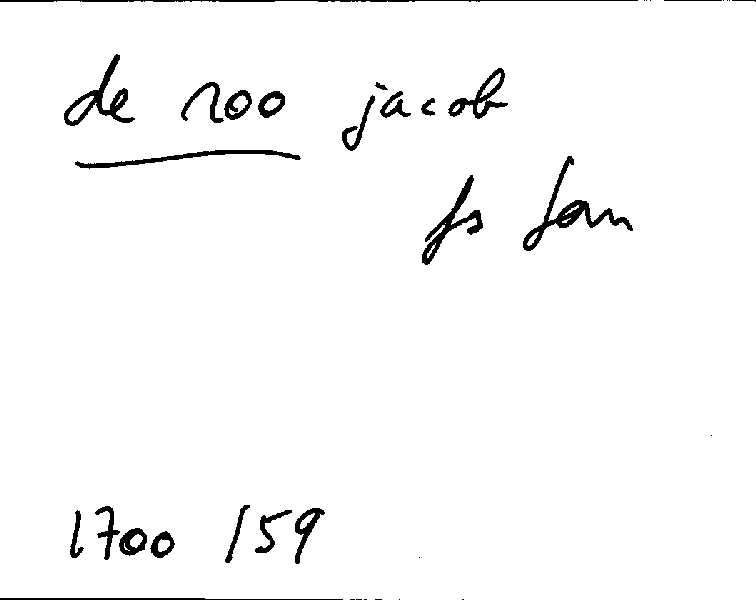 de roo jacob
fs Jan
1700 /59